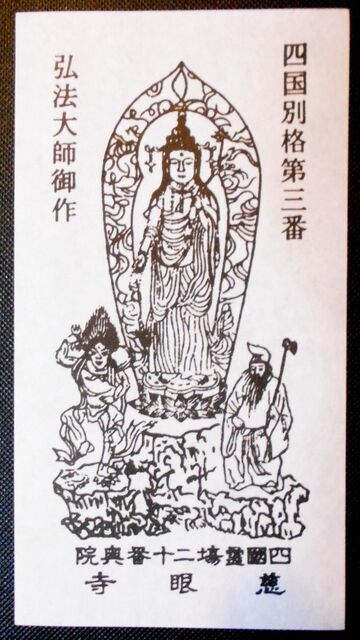 四国別格第三番
弘法大師御作
四國霊場二十番奥院
慈眼寺